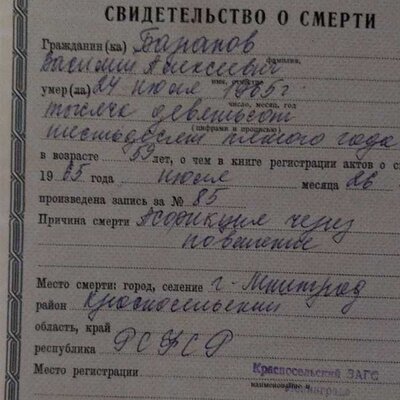 СВИДЕТЕЛЬСТВО О СМЕРТИ
Гражданин(ка) Баранов
фамилия,
Василий Алексеевич
имя, отчество
умер(ла) 24 июля 1965 г
число, месяц, год
тысяча девятьсот
(цифрами и прописью)
шестьдесят пятого года
в возрасте 59 лет, о чем в книге регистрации актов о
19 65 года июля месяца 26
произведена запись за № 85
Причина смерти Асфикция через
повешение
Место смерти: город, селение г.
район Красносельский
область, край
республика РСФСР
Место регистрации Красносельский ЗАГС